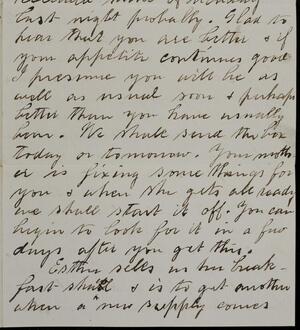 received
last night probably. Glad to
hear that you are better & if
your appetite continues good
I presume you will be as
well as usual soon & perhaps
better than you have usually
been. We shall send the box
today or tomorrow. Your moth-
er is fixing some things for
you & when she gets all ready
we shall start it off. You can
begin to look for it in a few
days after you get this.
Esther sells us her break-
fast shall & is to get another
when a new supply comes